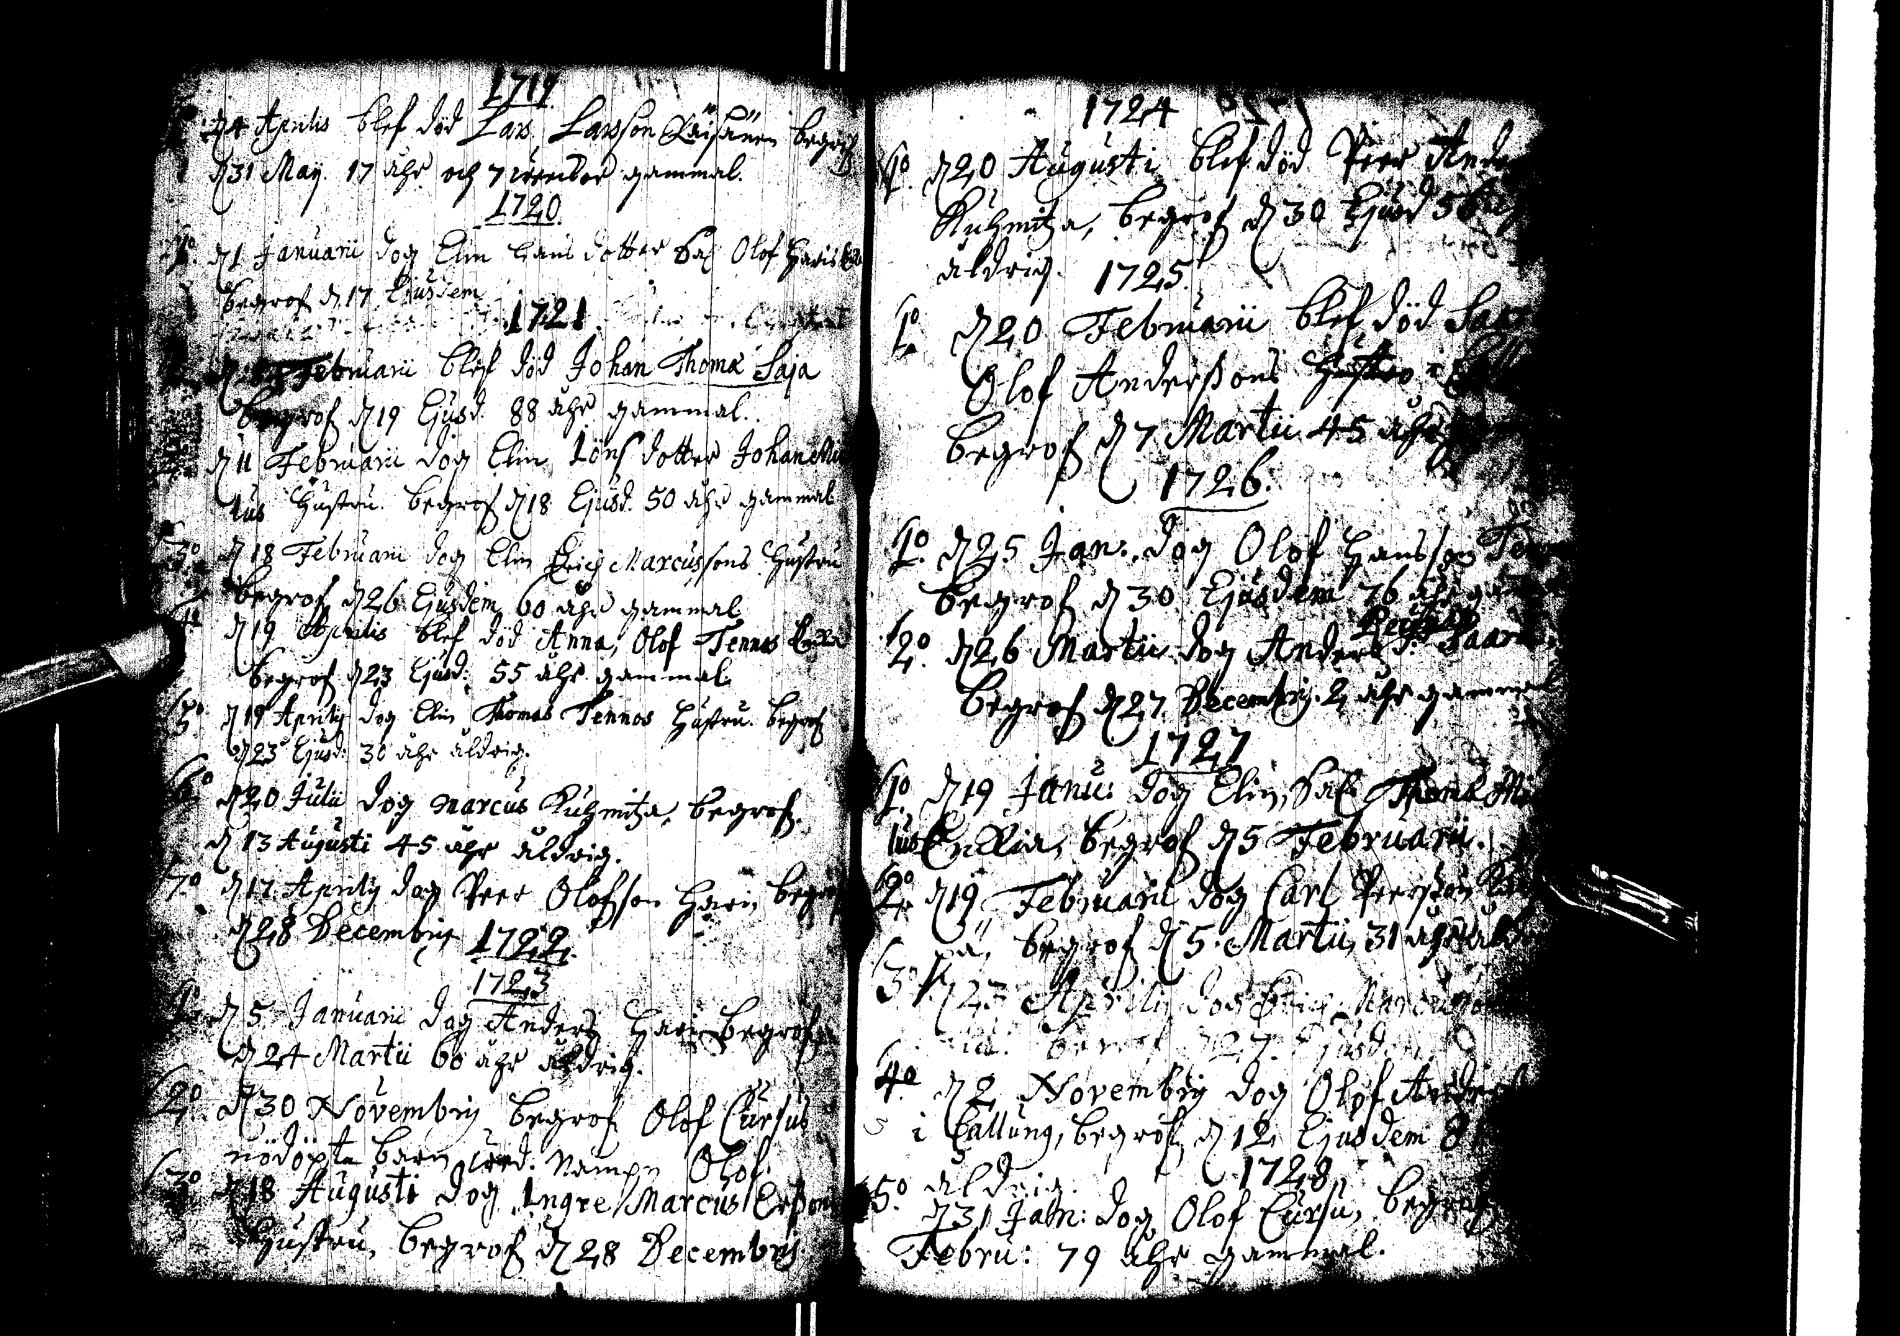 1719
d 4 Aprilis blef död Lars Larsson Räisänen begrof
d 31 May. 17 åhr och 7 veckor gammal.
1720
1o d 1 Januarii dog Elin Hans dotter Sal Olof Haris
begrof d 17 Ejusdem
1721
Februarii blef död Johan Thomæ Saja
begrof d 19 Ejusd. 88 åhr gammal.
d 11 Februarii dog Elin Jöns dotter Johan
lus Hustru. begrof d 18 Ejusd. 50 åhr gammal
3o d 18 Februarii dog Elin Erich Marcussons Hustru
begrof d 26 Ejusdem 60 åhr gammal
d 19 Aprilis blef död Anna, Olof Tennos
begrof d 23 Ejusd: 55 åhr gammal.
5o d 19 Aprilis dog Elin Thomas Tennos Hustru. begrof
d 23 Ejusd: 30 åhr åldrig.
6o d 20 Julii dog Marcus Kuhmitza, begrof
d 13 Augusti 45 åhr åldrig.
7o d 17. Aprilis dog Peer Olofsson Hari, begrof
d 28 Decembris 1722.
1723
d 5 Januarii dog Anders Hari begrof
d 24 Martii 60 åhr åldrig.
2o d 30 Novembris begrof Olof Cursus
nödöpte barn Nampn Olof.
3o d 18 Augusti dog Ingre Marcus Erßons
Hustru, begrof d 28 Decembris
1724
1o d 20 Augusti blef död Peer
Kuhmitza, begrof d 30 Ejusd 56
åldrig. 1725.
1o d 20 Februarii blef död
Olof Anderßons Hustro
begrof d 7 Martii 45 åhr
1726.
1o d 25 Jan: dog Olof Hansson
begrof d 30 Ejusdem 76 åhr
2o d 26 Martii dog Anders
begrof d 27 Decembris. 2 åhr gammal
1727
1o d 19 Janu: dog Elin, Sal Thoma
lus Enkia, begrof d 5 Februarii.
2o d 19 Februarii dog Carl Peerßon
pä, begrof d 5 Martii, 31 åhr
3o d 23 Aprilis dog Erich
begrof d 27 Ejusd
4o d 2 Novembris dog Olof
i Callung, begrof d 12 Ejusdem
åldrig. 1728
5o d 31 Jan: dog Olof Cursu, begrof
Febru: 79 åhr gammal.